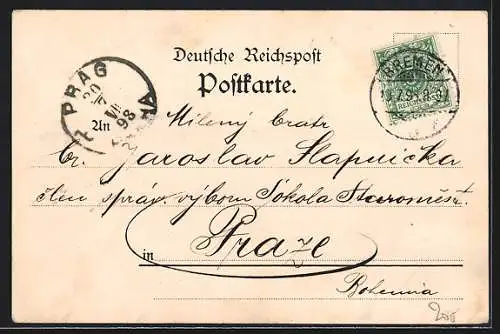 Deutsche Reichspost
Postkarte.
PRAG
20/7
VII
98
PRAHA
BREMEN
An Milený bratr
br. Jaroslav Slapnička
člen správ. výboru Sokola Staroměst.
in Praze
Bohemia